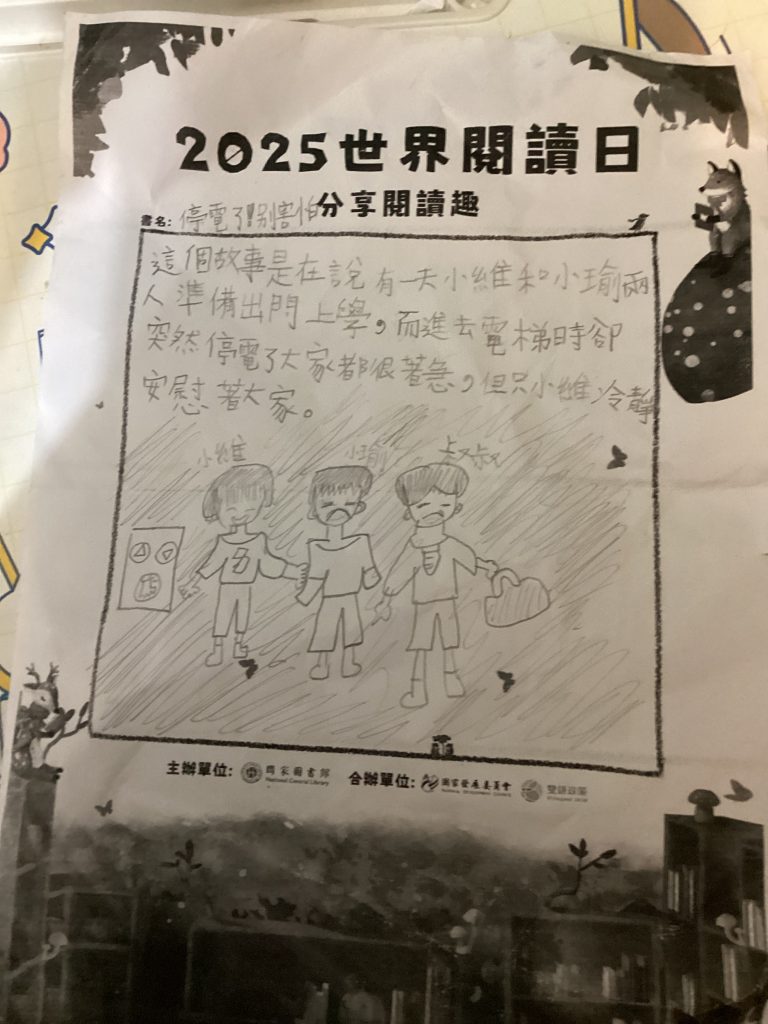 2025世界閱讀日
分享閱讀趣
書名: 停電了!別害怕
這個故事是在說有一天小維和小瑜兩
人準備出門上學,而進去電梯時卻
突然停電了大家都很著急,但只小維冷靜
安慰著大家。
小維 小瑜 叔叔
五
15
主辦單位: 國家圖書館 合辦單位: 國家發展委員會 雙語政策
National Central Library NATIONAL DEVELOPMENT COUNCIL